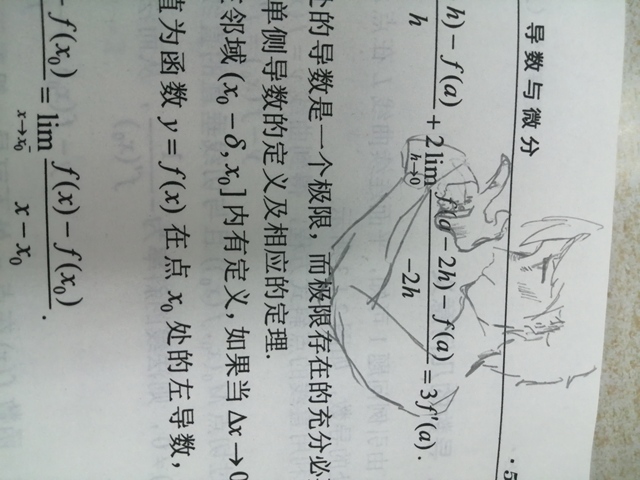 导数与微分 · 5
h) − f(a) / h + 2 lim_{h→0} f(a − 2h) − f(a) / −2h = 3f′(a).
的导数是一个极限,而极限存在的充分必
单侧导数的定义及相应的定理.
邻域 (x₀ − δ, x₀] 内有定义,如果当 Δx → 0
值为函数 y = f(x) 在点 x₀ 处的左导数,
f(x₀) = lim_{x→x₀⁻} f(x) − f(x₀) / x − x₀ .